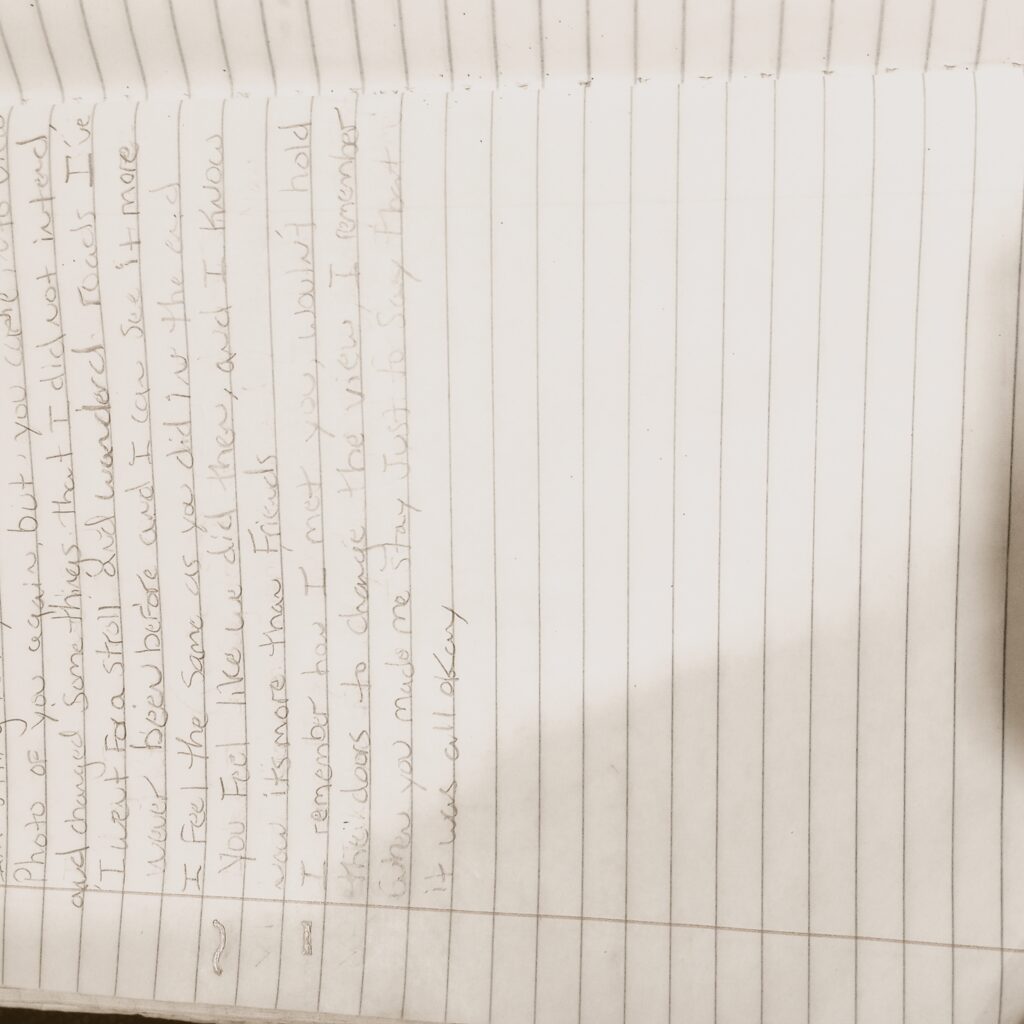 Photo of you again, but, you came into
and changed some things that I did not intend,
I went For a stroll and wandered roads I've
never been before and I can see it more
I Feel the same as you did in the end
You Feel like we did then, and I know
now its more than Friends
I remember how I met you, wouldn't hold
the doors to change the view, I remember
when you made me stay Just to say that
it was all okay